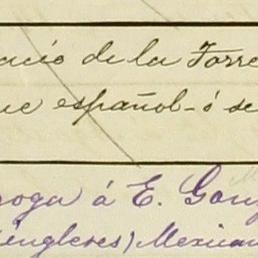 acio de la Torre
ue español - ó se
roga á E. Gonz
ingleses) Mexican